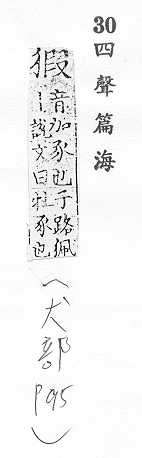 30四聲篇海
猳
音加豕也子路佩
丨說文曰牡豕也
(犬部
P95)